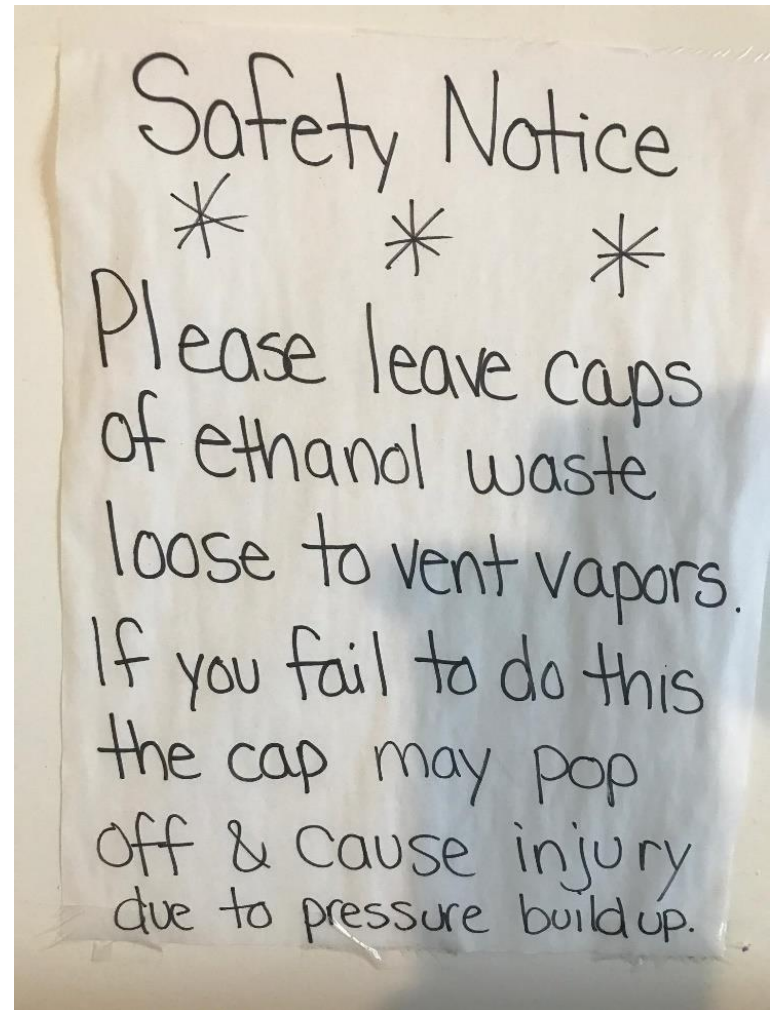 Safety Notice
* * *
Please leave caps
of ethanol waste
loose to vent vapors.
If you fail to do this
the cap may pop
off & cause injury
due to pressure build up.